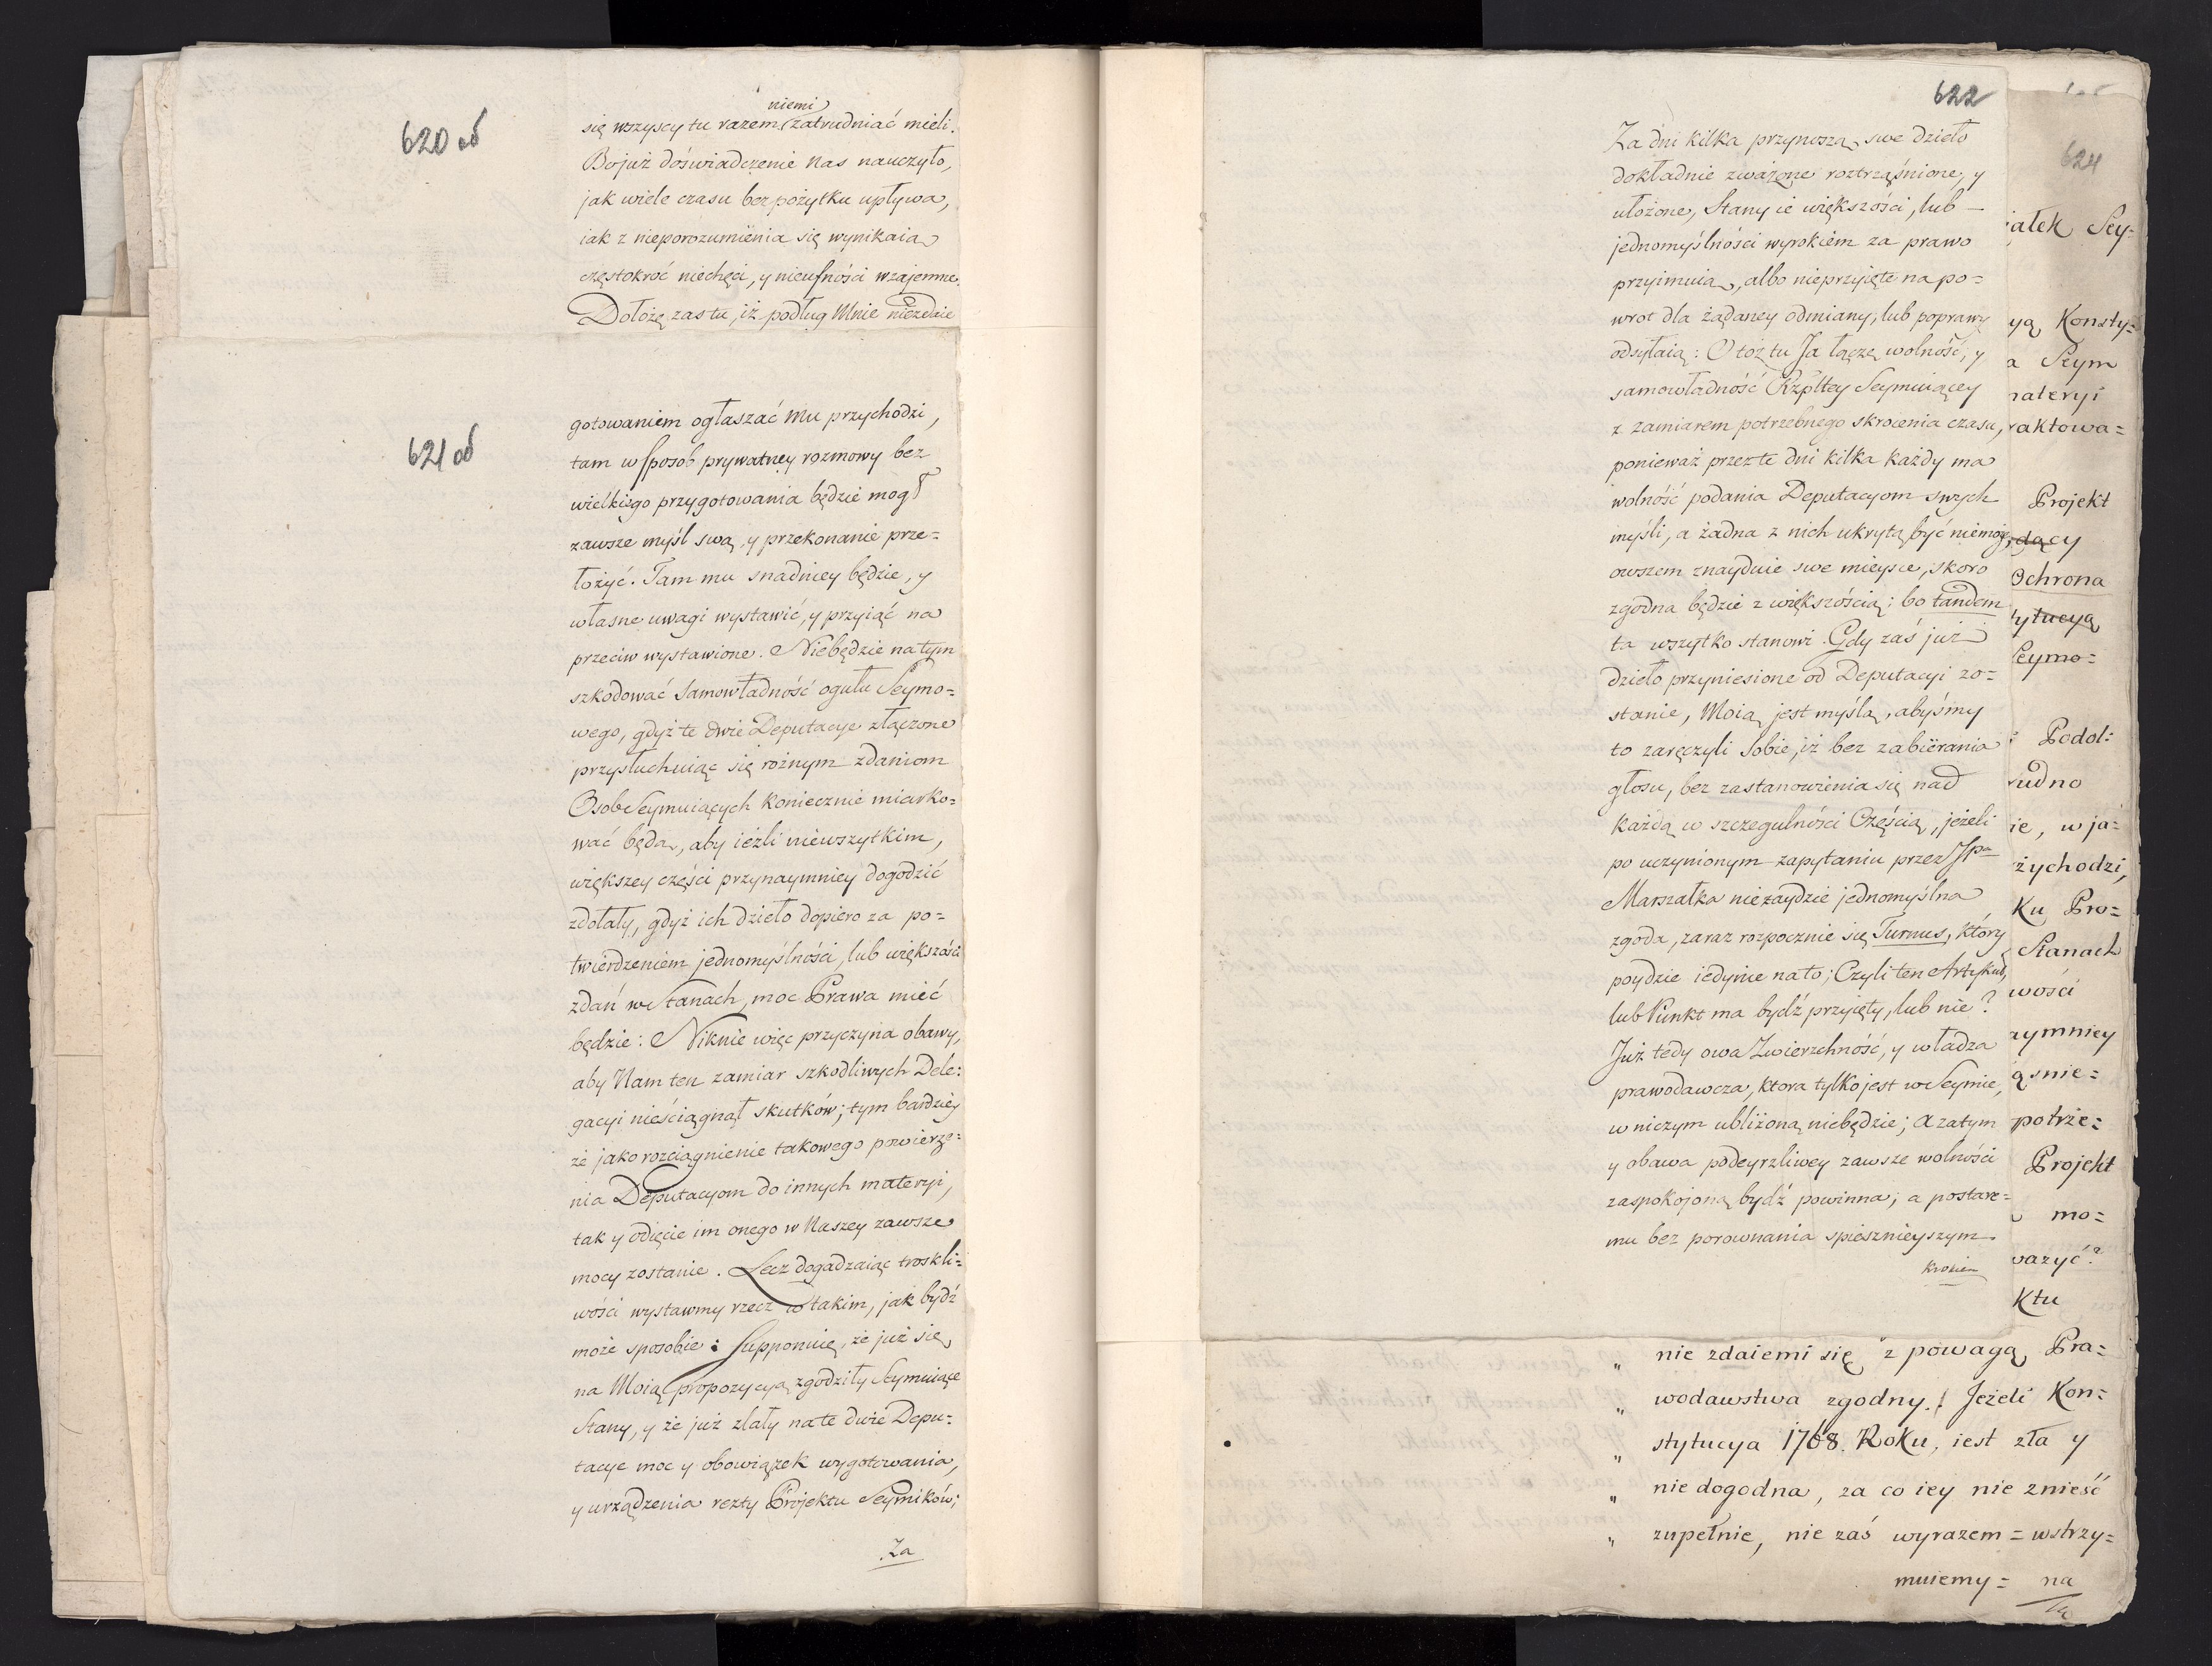 620 об
niemi
się wszyscy tu razem zatrudniać mieli.
Bo już doświadczenie nas nauczyło,
jak wiele czasu bez pożytku upływa,
iak z nieporozumienia się wynikaią
częstokroć niechęci, y nieufności wzajemne.
Dołożę zas tu, iż podług Mnie
621 об
gotowaniem ogłaszać mu przychodzi,
tam w sposob prywatney rozmowy bez
wielkiego przygotowania będzie mogł
zawsze myśl swą, y przekonanie prze=
łożyć. Tam mu snadniey będzie, y
własne uwagi wystawić, y przyiąć na
przeciw wystawione. Niebędzie na tym
szkodować Samowładność ogułu Seymo=
wego, gdyż te dwie Deputacye złączone
przysłuchuiąc się rożnym zdaniom
Osob Seymuiących koniecznie miarko=
wać będą, aby ieżli niewszytkim,
większey części przynaymniey dogodzić
zdołały, gdyż ich dzieło dopiero za po=
twierdzeniem jednomyślności, lub większości
zdań w Stanach, moc Prawa mieć
będzie: Niknie więc przyczyna obawy,
aby Nam ten zamiar szkodliwych Dele:
gacyi nieściągnął skutków; tym bardziey
że jako rozciągnienie takowego powierze:
nia Deputacyom do innych materyi,
tak y odięcie im onego w Naszey zawsze
mocy zostanie. Lecz dogadzaiąc troskli=
wości wystawmy rzecz w takim, jak bydź
może sposobie: Supponuię, że już się
na Moią propozycyą zgodziły Seymuiące
Stany, y że już zlały na te dwie Depu=
tacye moc y obowiązek wygotowania,
y urządzenia rezty Projektu Seymików;
Za
622
Za dni kilka przynoszą swe dzieło
dokładnie zważone roztrząśnione, y
ułożone, Stany ie większości, lub
jednomyślności wyrokiem za prawo
przyimuią, albo nieprzyięte na po=
wrot dla żądaney odmiany, lub poprawy
odsyłaią: Otoż tu Ja łączę wolność, y
samowładność Rzpltey Seymuiącey
z zamiarem potrzebnego skrocenia czasu,
ponieważ przez te dni kilka każdy ma
wolność podania Deputacyom swych
myśli, a żadna z nich ukrytą być niemoże,
owszem znayduie swe mieysce, skoro
zgodna będzie z większością; bo tandem
ta wszytko stanowi. Gdy zaś już
dzieło przyniesione od Deputacyi zo=
stanie, Moią jest myślą, abyśmy
to zaręczyli sobie, iż bez zabierania
głosu, bez zastanowienia się nad
każdą w szczegulności Częścią, jeżeli
po uczynionym zapytaniu przez JPa
Marszałka niezaydzie jednomyślna
zgoda, zaraz rozpocznie się Turnus, który
poydzie iedynie na to; Czyli ten Artykuł,
lub Punkt ma bydź przyięty, lub nie?
Już tedy owa Zwierzchność, y władza
prawodawcza, ktora tylko jest w Seymie,
w niczym ubliżoną niebędzie; a zatym
y obawa podeyrzliwey zawsze wolności
zaspokojoną bydź powinna; a postare=
mu bez porownania spiesznieyszym
krokiem
624
iałek Sey=
yą Konsty=
a Seym
materyi
raktowa=
Projekt
dący
Ochrona
tytucyą
Seymo=
Podol:
rudno
ie, w ja=
żychodzi,
Ku Pro=
Stanach
wości
aymniey
ąśnie=
potrze=
Projekt
mo=
ważyć?
Ktu
„ nie zdaiemi się z powagą Pra=
„ wodawstwa zgodny! Jeżeli Kon=
„ stytucya 1768. Roku, iest zła y
„ nie dogodna, za co iey nie znieść
„ zupełnie, nie zaś wyrazem = wstrzy=
muiemy = na